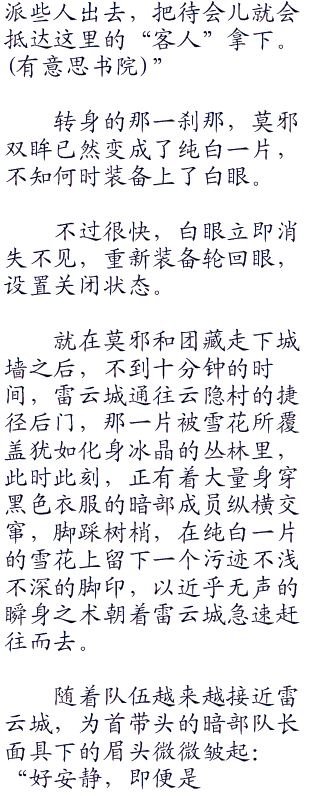 派些人出去，把待会儿就会
抵达这里的“客人”拿下。
(有意思书院)”
转身的那一刹那，莫邪
双眸已然变成了纯白一片，
不知何时装备上了白眼。
不过很快，白眼立即消
失不见，重新装备轮回眼，
设置关闭状态。
就在莫邪和团藏走下城
墙之后，不到十分钟的时
间，雷云城通往云隐村的捷
径后门，那一片被雪花所覆
盖犹如化身冰晶的丛林里，
此时此刻，正有着大量身穿
黑色衣服的暗部成员纵横交
窜，脚踩树梢，在纯白一片
的雪花上留下一个污迹不浅
不深的脚印，以近乎无声的
瞬身之术朝着雷云城急速赶
往而去。
随着队伍越来越接近雷
云城，为首带头的暗部队长
面具下的眉头微微皱起：
“好安静，即便是